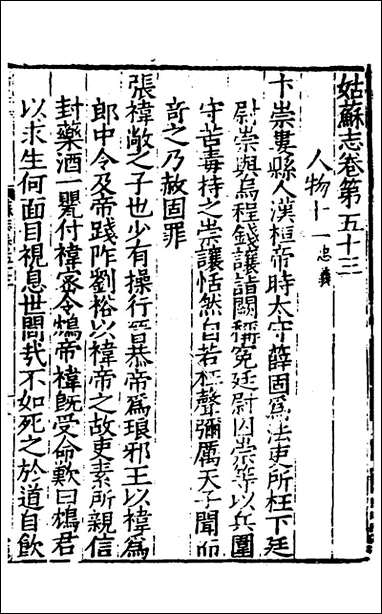 姑蘇志卷第五十三
人物十一忠義
卞崇婁縣人漢桓帝時太守薛固爲法吏所枉下廷
尉崇與烏程錢讓詣闕稱寃廷尉囚崇等以兵圍
守苦毒持之崇讓恬然自若枉聲彌厲天子聞而
奇之乃赦固罪
張禕敞之子也少有操行晉恭帝爲琅邪王以禕爲
郎中令及帝踐阼劉裕以禕帝之故吏素所親信
封藥酒一甖付禕宻令鴆帝禕旣受命歎曰鴆君
以求生何面目視息世間哉不如死之於道自飲